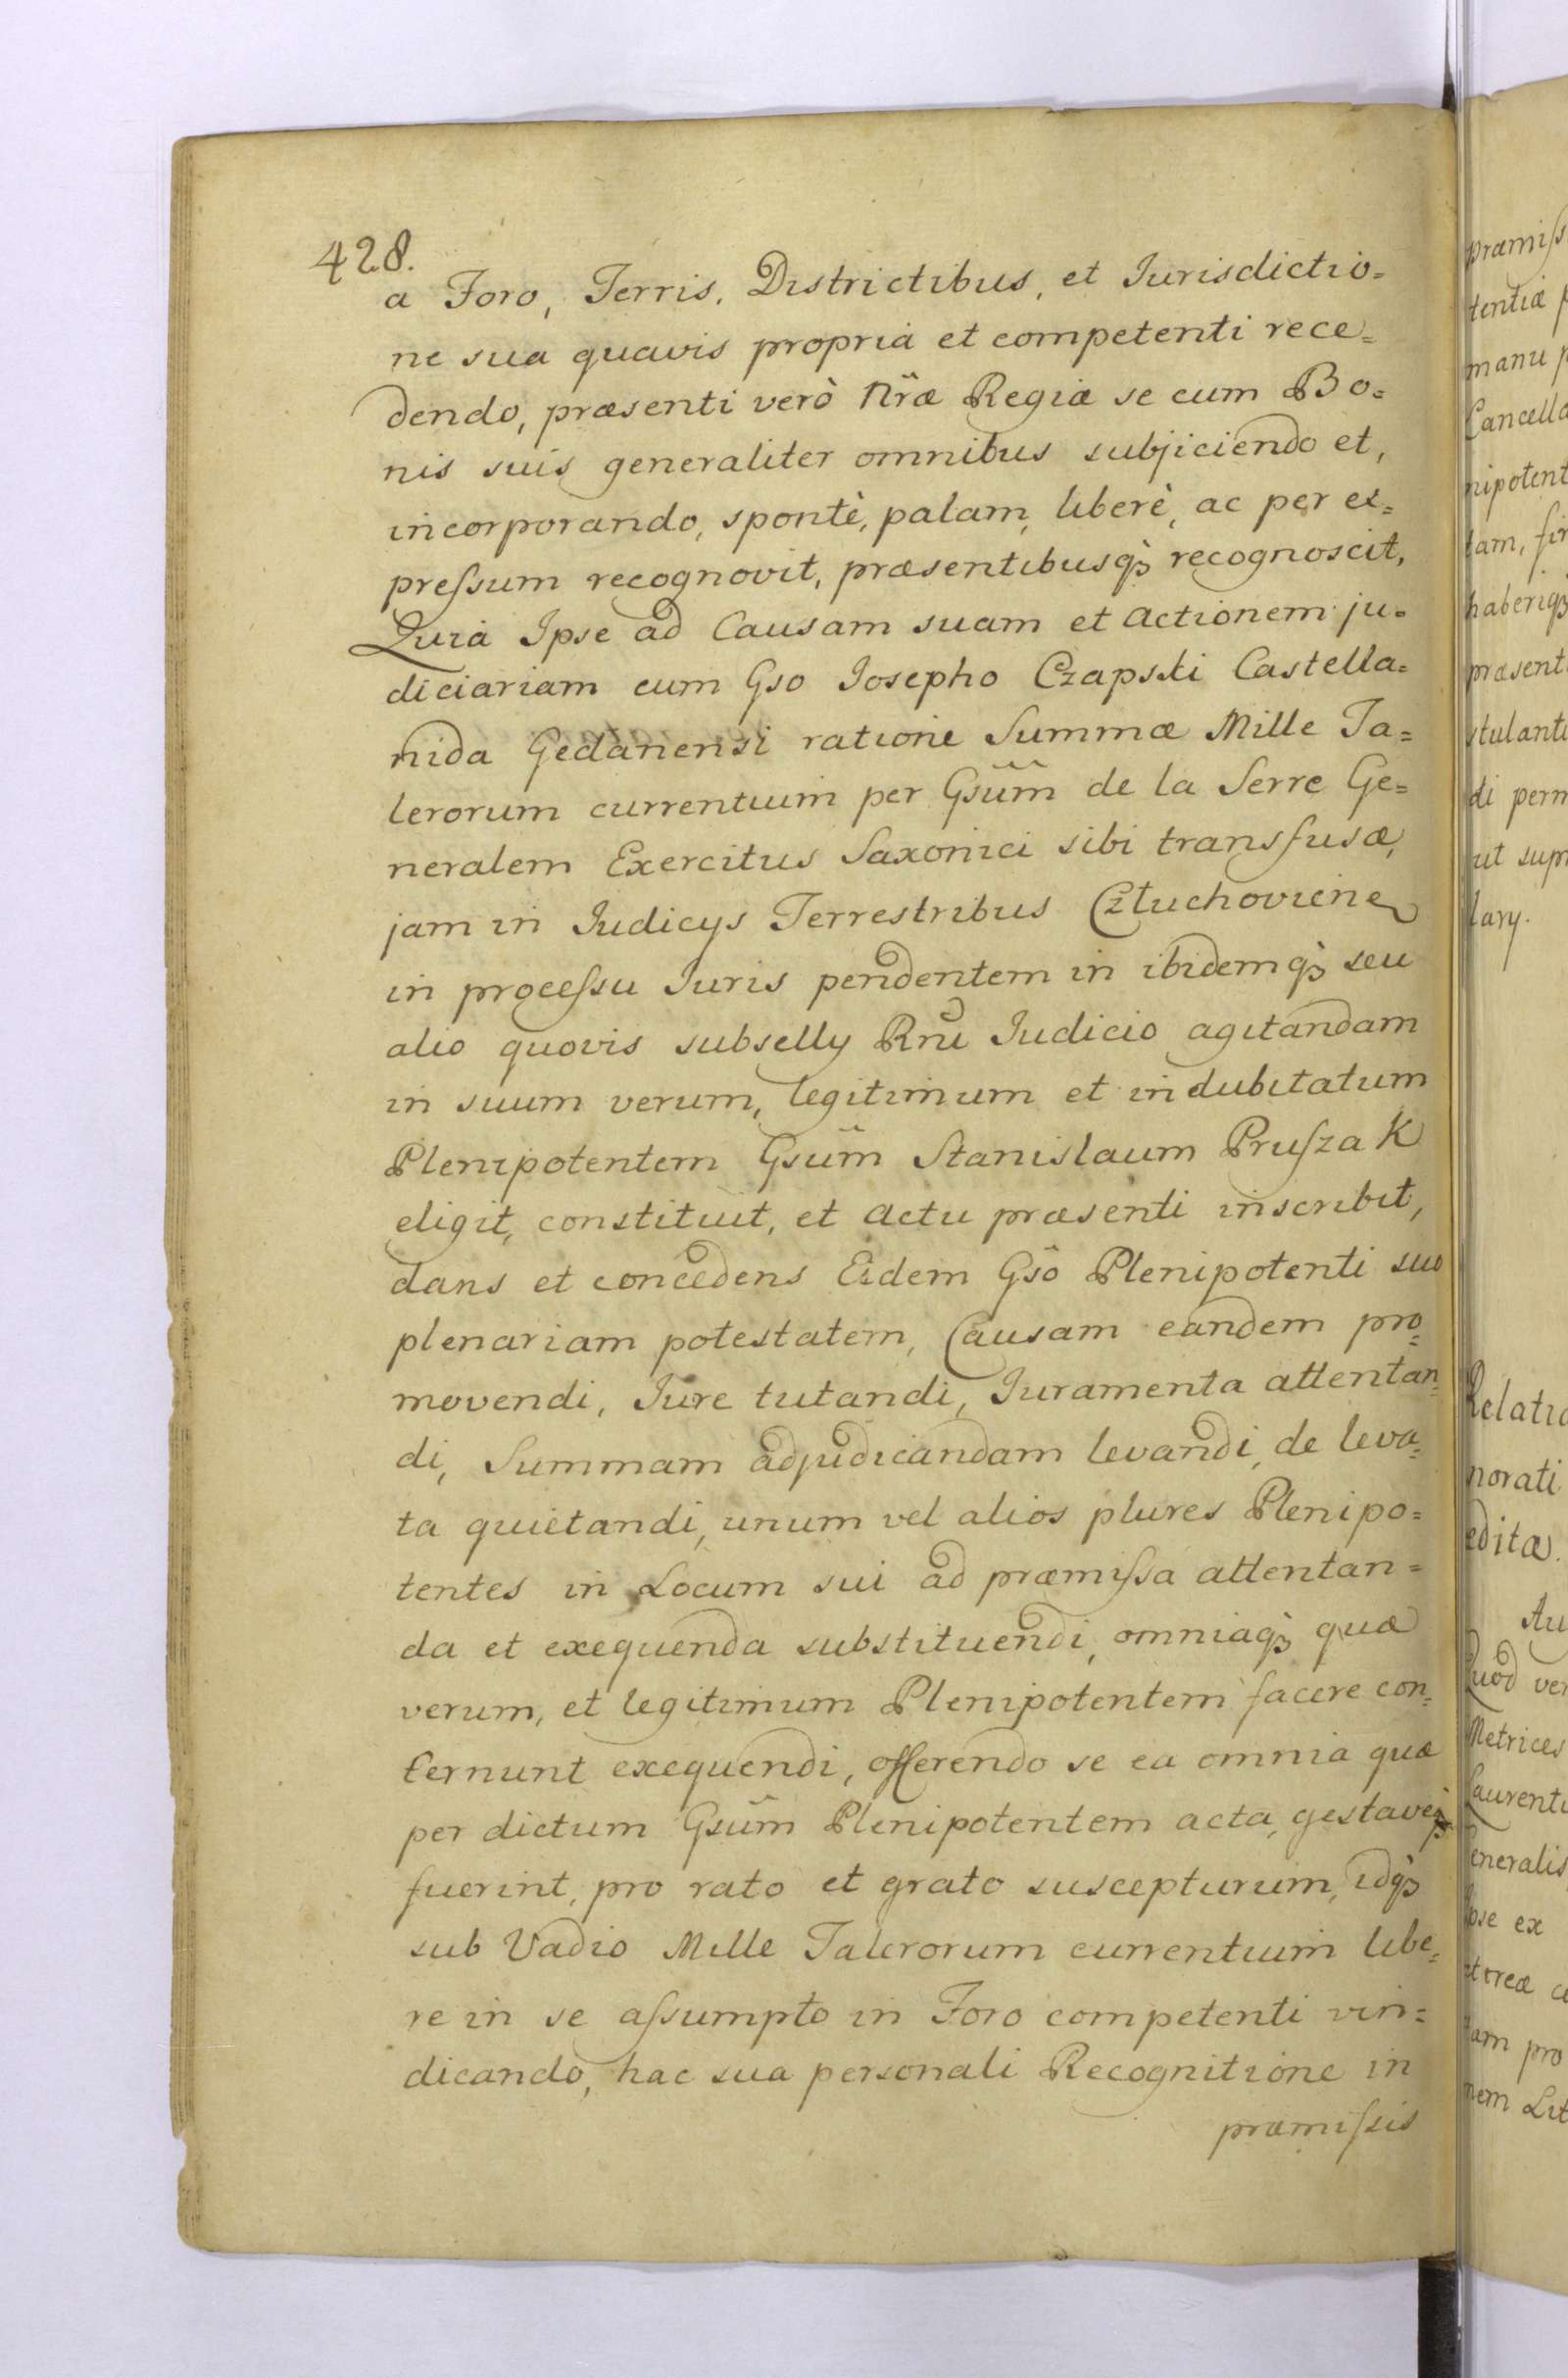 428.
a Foro, Terris, Districtibus, et Iurisdictio=
ne sua quavis propriâ et competenti rece=
dendo, præsenti verò Nr̃æ Regiæ se cum Bo=
nis suis generaliter omnibus subjiciendo et,
incorporando, spontè, palam, liberè, ac per ex=
preſsum recognovit, præsentibusq̀ꝫ recognoscit,
Quia Ipse ad Causam suam et Actionem ju=
diciariam cum Gso Iosepho Czapski Castella=
nida Gedanensi ratione Summæ Mille Ta=
lerorum currentium per Gsum̃ de la Serre Ge=
neralem Exercitus Saxonici sibi transfusæ,
jam in Iudicys Terrestribus Człuchovien̄
in proceſsu Iuris pendentem in ibidemq̀ꝫ seu
alio quovis subselly Rñi Iudicio agitandam
in suum verum, legitimum et indubitatum
Plenipotentem Gsum̃ Stanislaum Pruſzak
eligit, constituit, et Actu præsenti inscribit,
dans et concedens Eidem Gs̃o Plenipotenti suo
plenariam potestatem, Causam eandem pro=
movendi, Iure tutandi, Iuramenta attentan=
di, Summam adjudicandam levandi, de leva=
ta quietandi, unum vel alios plures Plenipo=
tentes in Locum sui ad præmiſsa attentan=
da et exequenda substituendi, omniaq̀ꝫ quæ
verum, et legitimum Plenipotentem facere con=
cernunt exequendi, offerendo se ea omnia quæ
per dictum Gsum̃ Plenipotentem acta, gestaveꝫ
fuerint, pro rato et grato suscepturum, idq̀ꝫ
sub Vadio Mille Talerorum currentium libe=
re in se aſsumpto in Foro competenti vin=
dicando, hac sua personali Recognitione in
præmiſsis
præmiſs
tentiæ
manu
Cancella
nipotent
tam, fir
haberiqꝫ
præsent
stulanti
di perm
ut supr
lary.
Relatio
norati
editæ.
Au
Quod ver
Metrices
Laurenti
Generalis
Ipse ex
tam pro
nem Lit